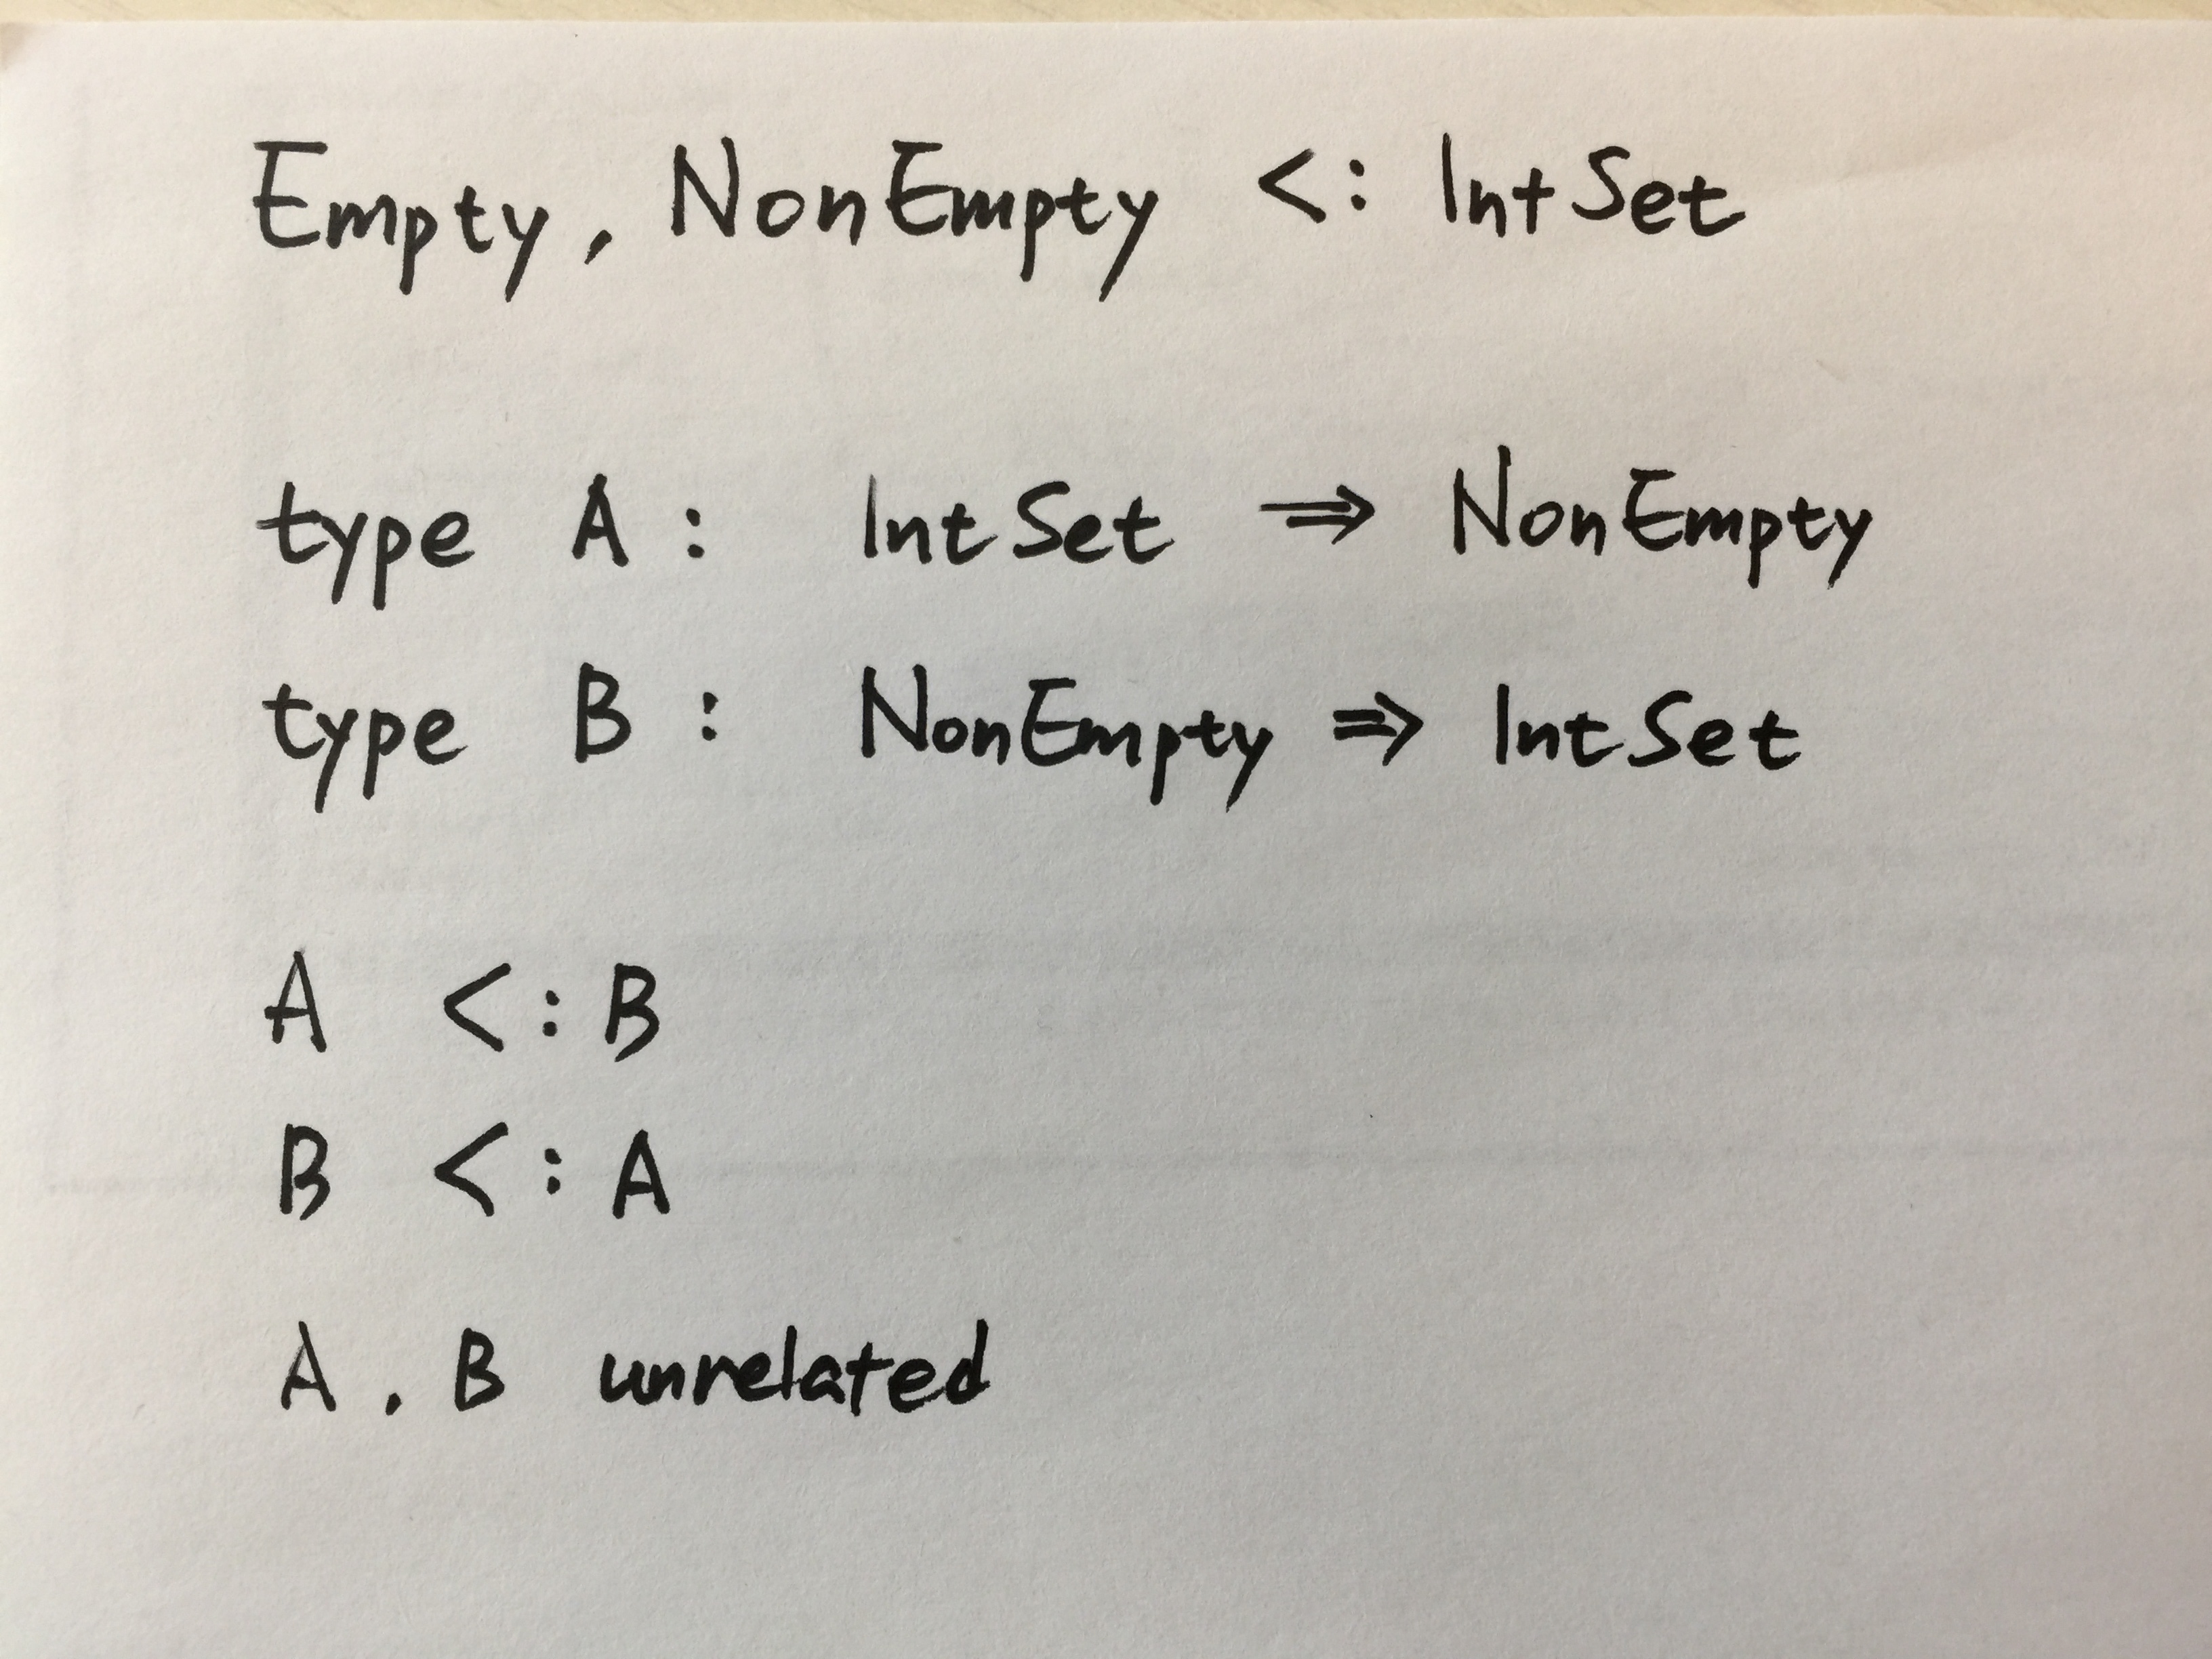 Empty, NonEmpty <: IntSet
type A : IntSet ⇒ NonEmpty
type B : NonEmpty ⇒ IntSet
A <: B
B <: A
A , B unrelated